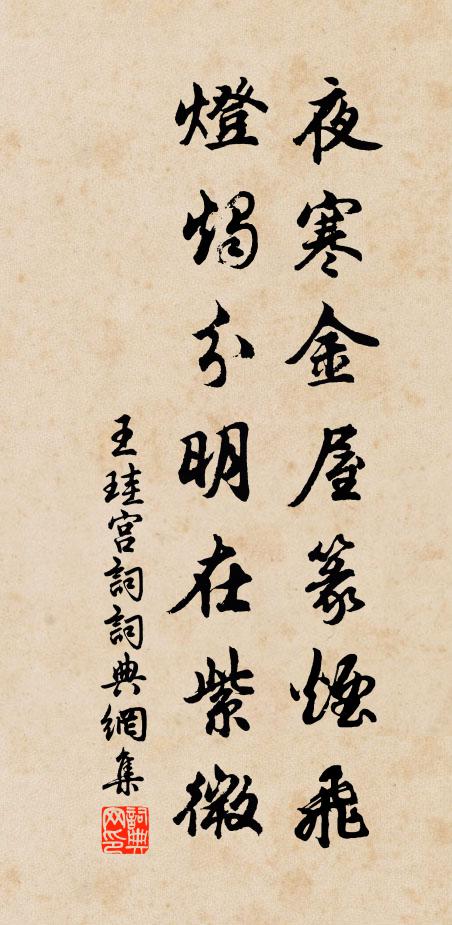 夜寒金屋篆煙飛
燈燭分明在紫微
王珪宮詞詞典網集
詞典網印